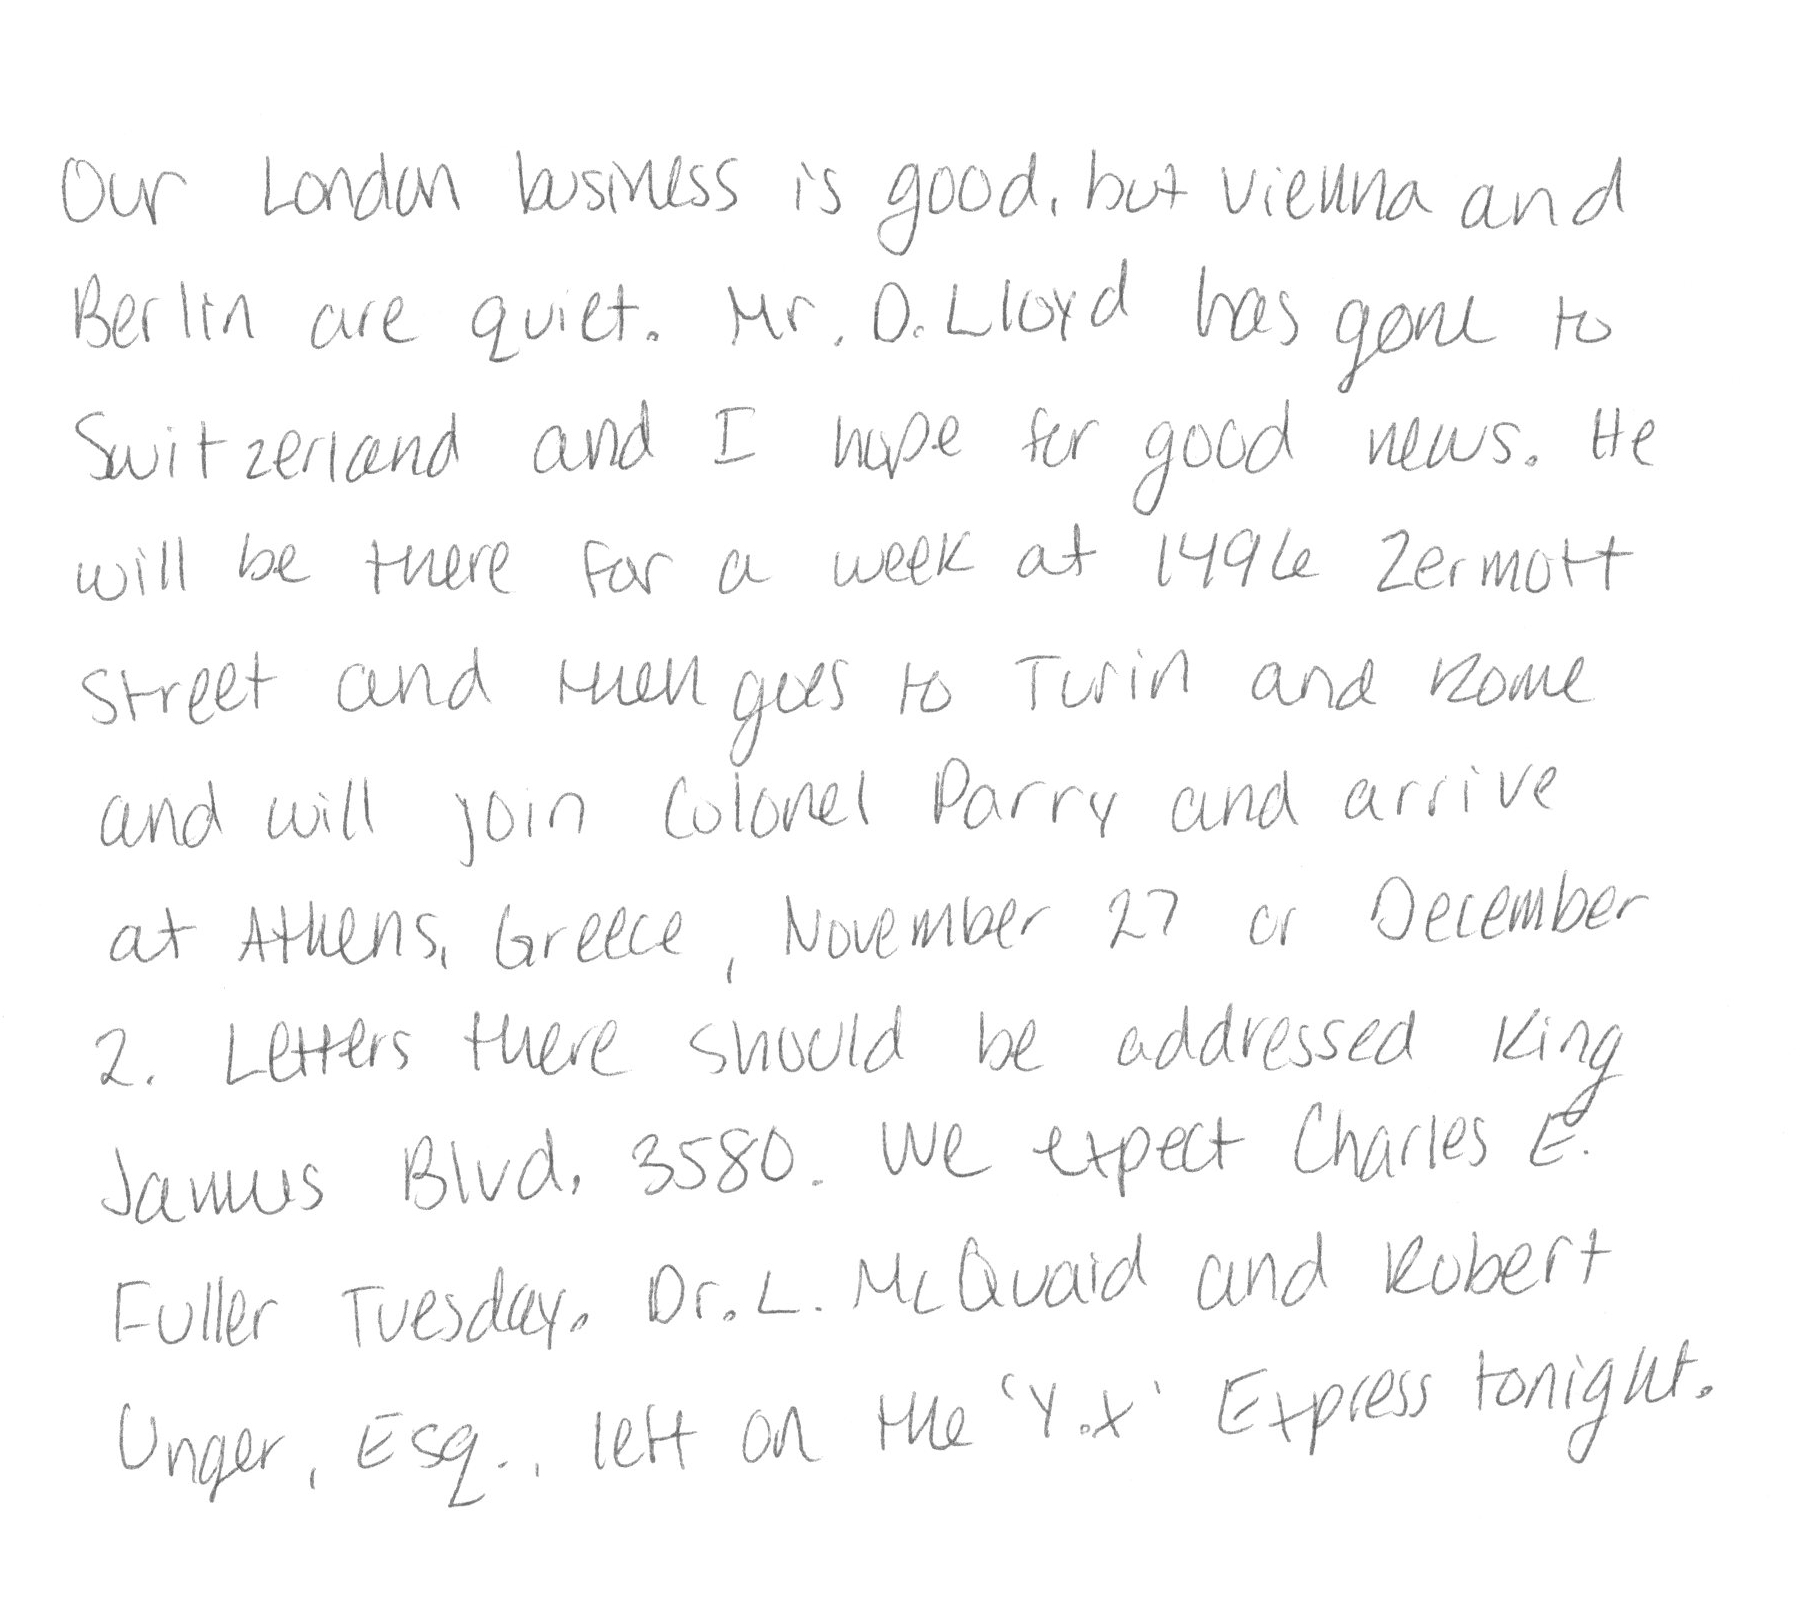 Our London business is good, but Vienna and
Berlin are quiet. Mr. D. Lloyd has gone to
Switzerland and I hope for good news. He
will be there for a week at 1496 Zermott
Street and then goes to Turin and Rome
and will join Colonel Parry and arrive
at Athens, Greece, November 27 or December
2. Letters there should be addressed King
James Blvd. 3580. We expect Charles E.
Fuller Tuesday. Dr. L. McQuaid and Robert
Unger, Esq., left on the 'Y.X' Express tonight.